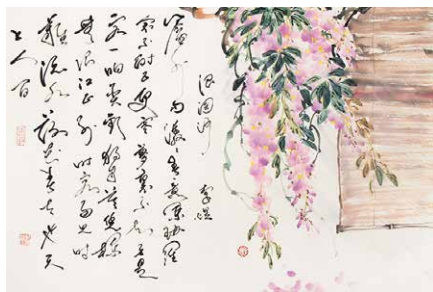 浪淘沙 李煜
簾外雨潺潺春意闌珊羅
衾不耐五更寒夢裏不知身是
客一晌貪歡獨自莫憑欄無
限江山別時容易見時
難流水落花春去也天
上人間